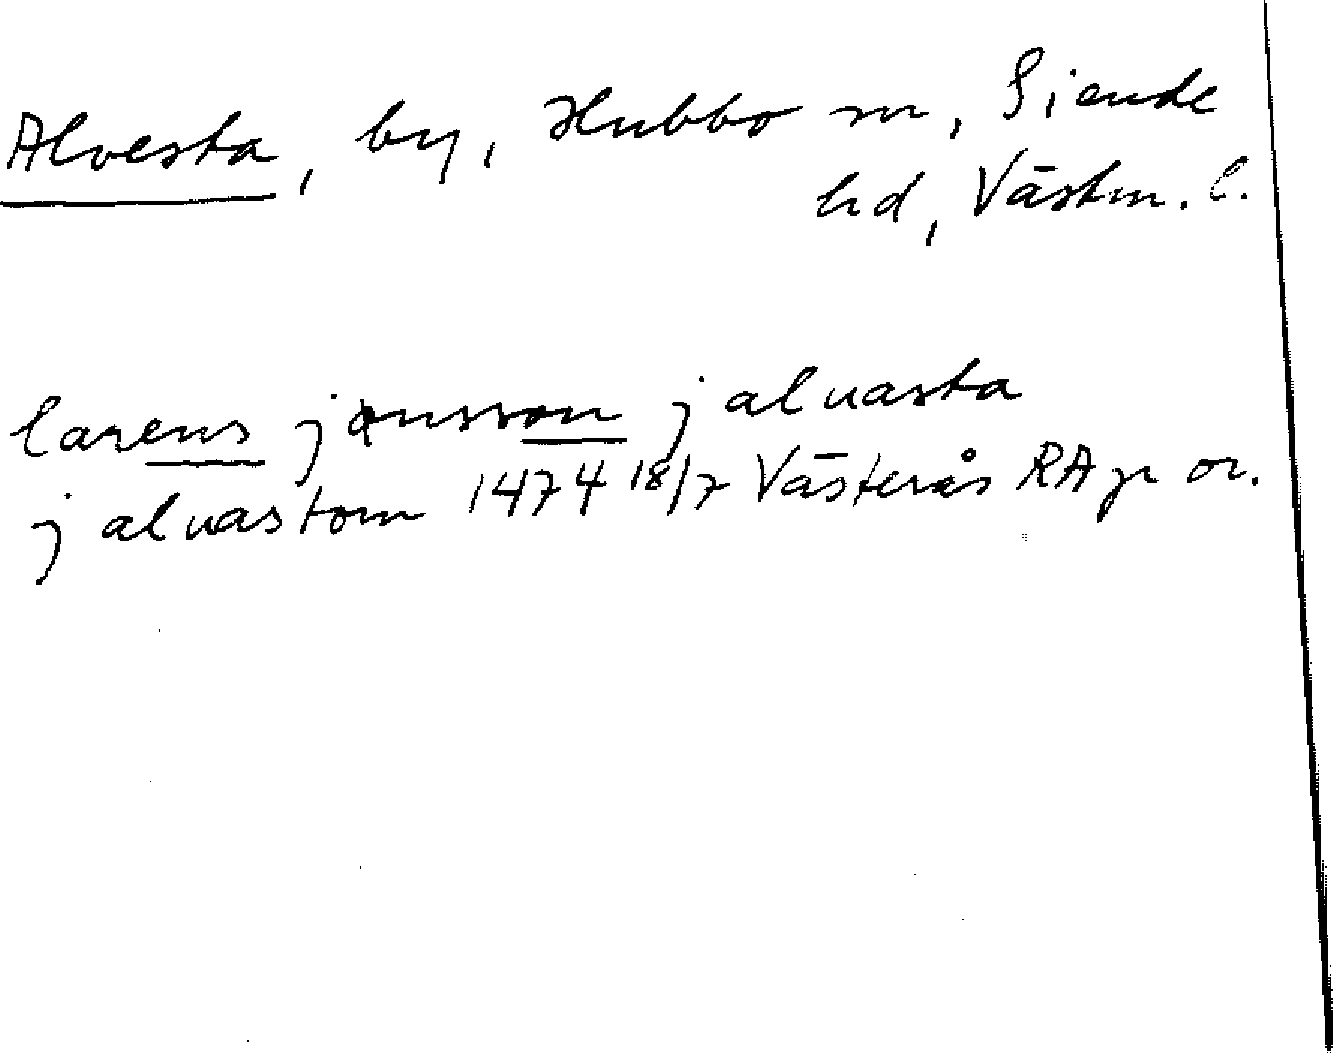 Alvesta, by, Hubbo sn, Siende
hd, Västm. l.
larens jønsson j aluasta
j aluastom 1474 18/7 Västerås RA pr or.